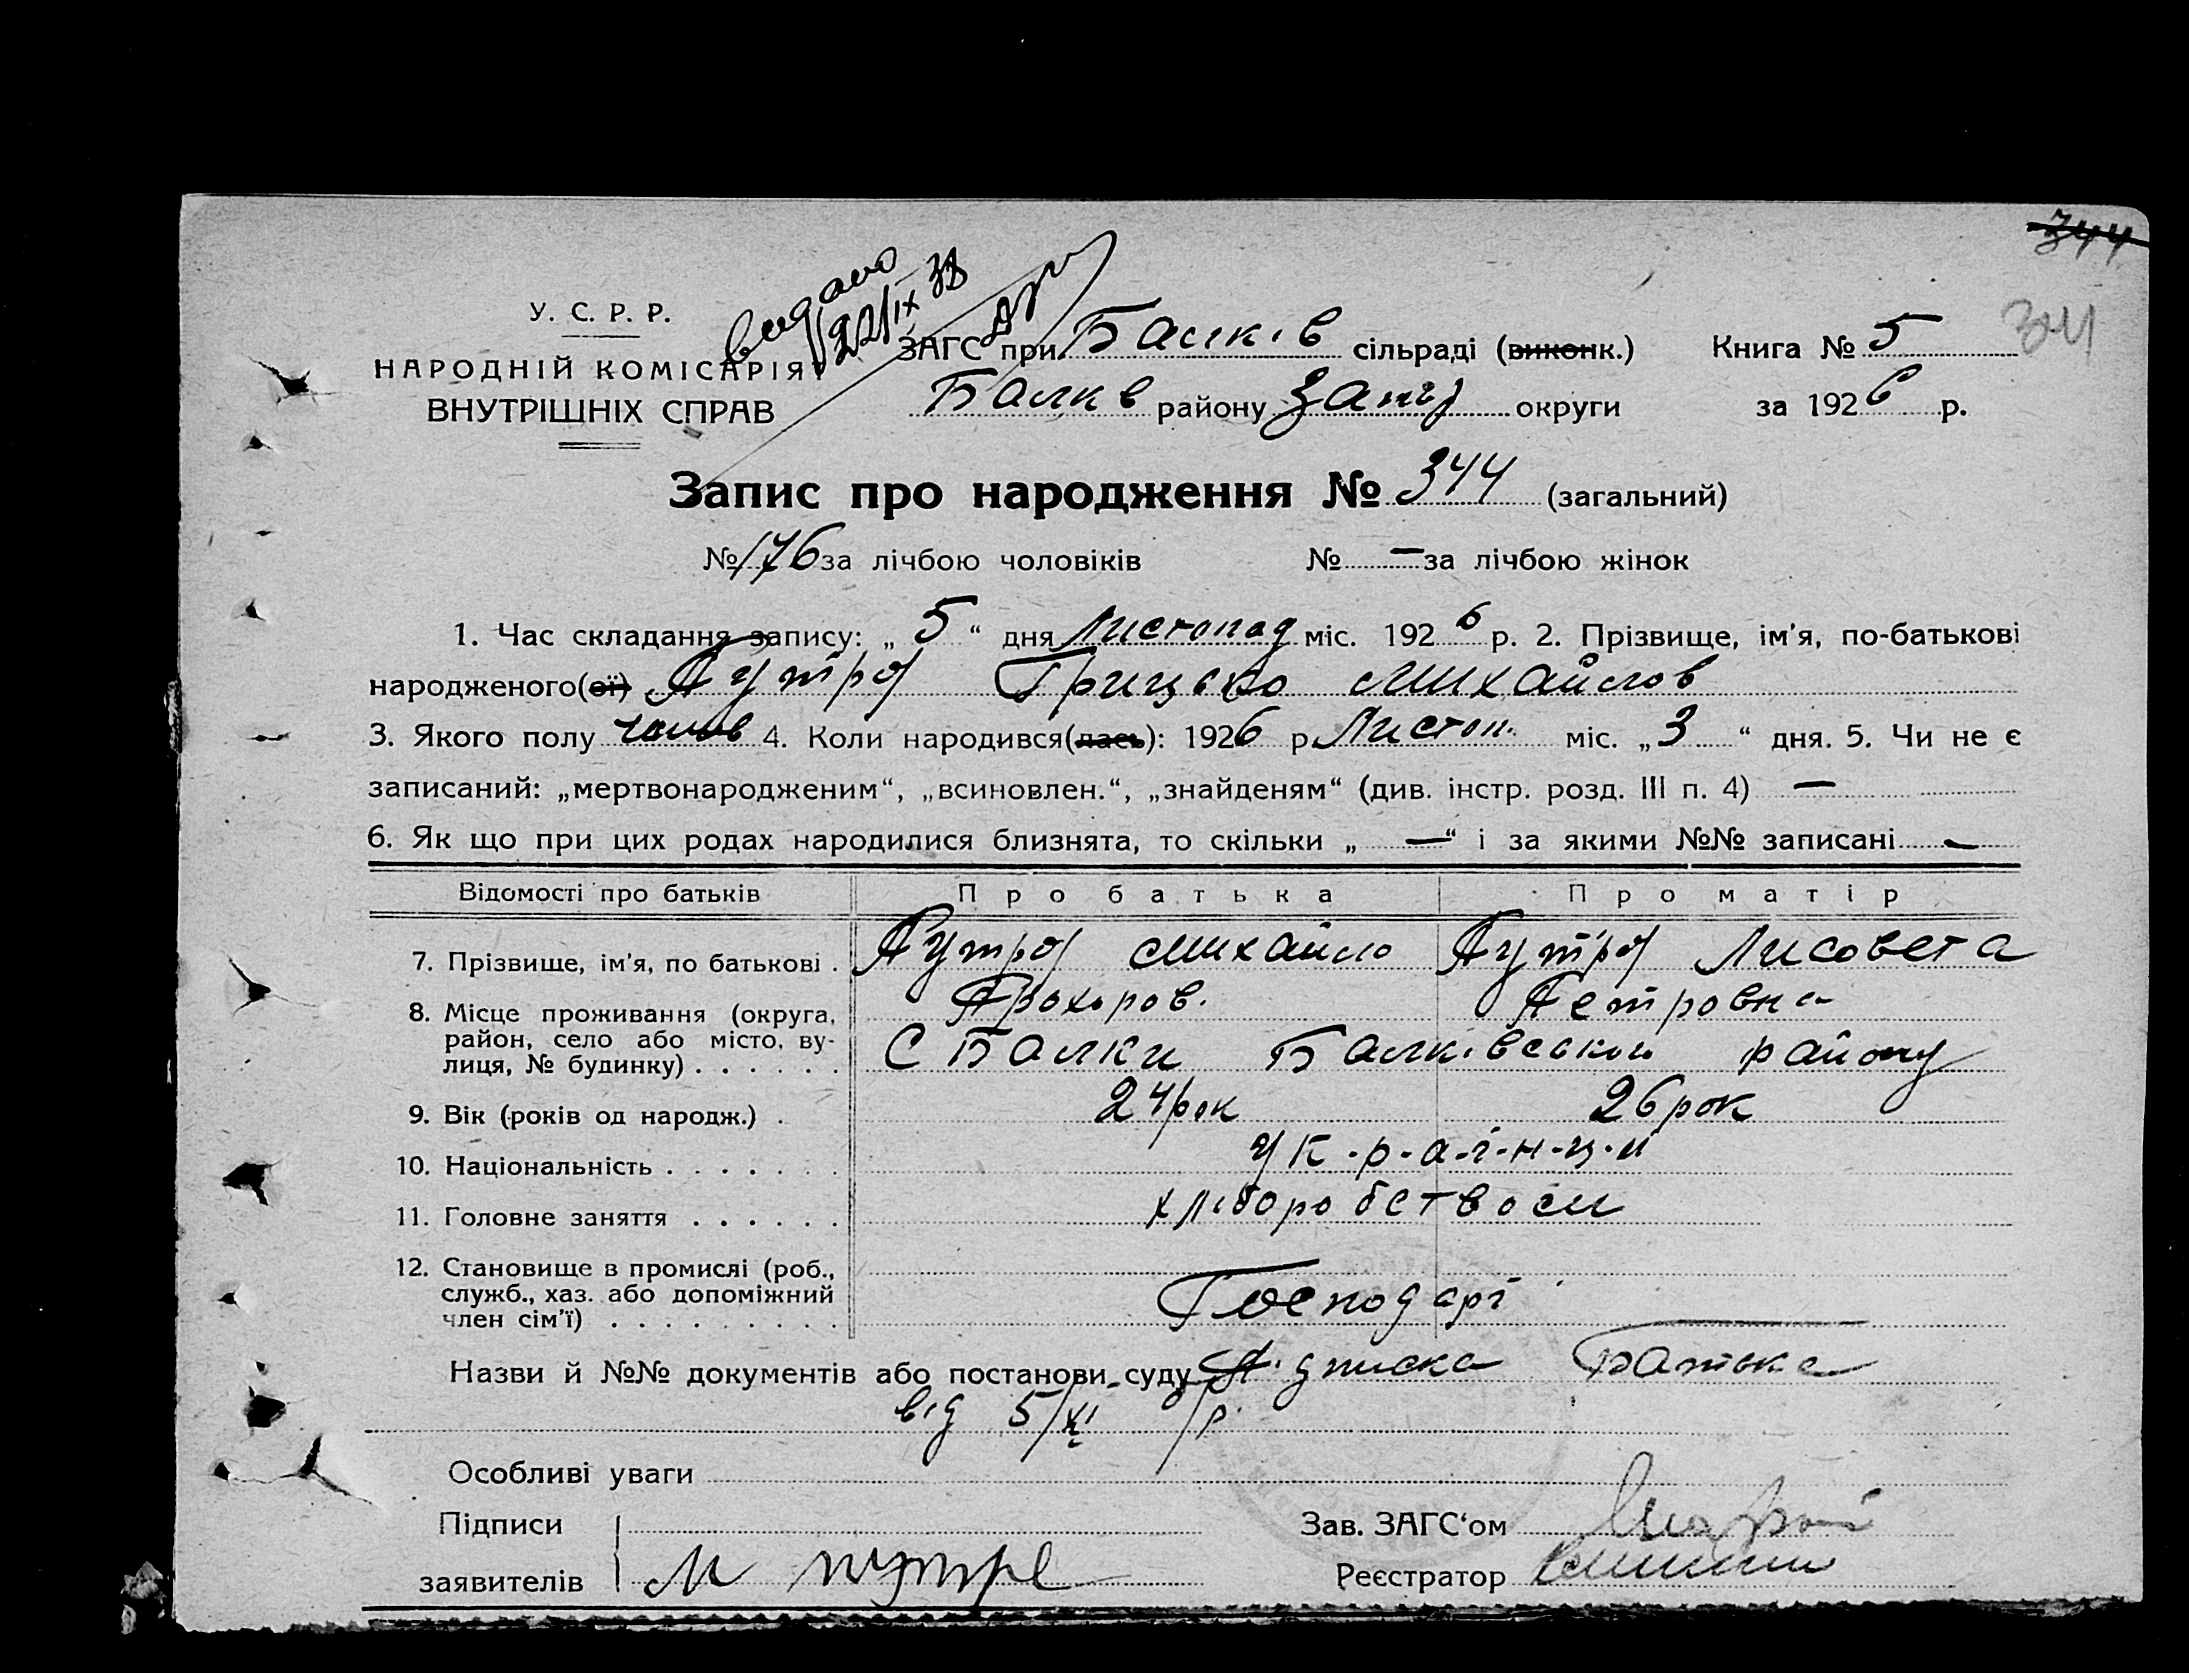 344
344
видано
22/IX 38
У. С. Р. Р.
НАРОДНІЙ КОМІСАРІЯТ
ВНУТРІШНІХ СПРАВ
ЗАГС при Балків сільраді (виконк.) Книга № 5
Балків району Запор округи за 1926 р.
Запис про народження № 344 (загальний)
№ 176 за лічбою чоловіків № — за лічбою жінок
1. Час складання запису: „ 5 “ дня Листопад міс. 1926 р. 2. Прізвище, ім'я, по-батькові
народженого(ої) Путря Грицько Михайлов
3. Якого полу чолов 4. Коли народився(лась): 1926 р. Листоп. міс. „ 3 “ дня. 5. Чи не є
записаний: „мертвонародженим“, „всиновлен.“, „знайденям“ (див. інстр. розд. III п. 4) —
6. Як що при цих родах народилися близнята, то скільки „ — “ і за якими №№ записані —
Відомості про батьків Про батька Про матір
7. Прізвище, ім'я, по батькові . Путря Михайло Путря Лисовета
Прохоров. Петровна
8. Місце проживання (округа, район, село або місто, вулиця, № будинку) . . . . . . С Балки Балківського району
9. Вік (років од народж.) . 24 рок 26 рок
10. Національність . . . . . . . українци
11. Головне заняття . . . . . . хліборобством
12. Становище в промислі (роб., служб., хаз. або допоміжний член сім'ї) . . . . . . . . . Господарі
Назви й №№ документів або постанови суду Підписка Батька
від 5/XI б/р.
Особливі уваги
Підписи
заявителів М Путре
Зав. ЗАГС‘ом
Реєстратор